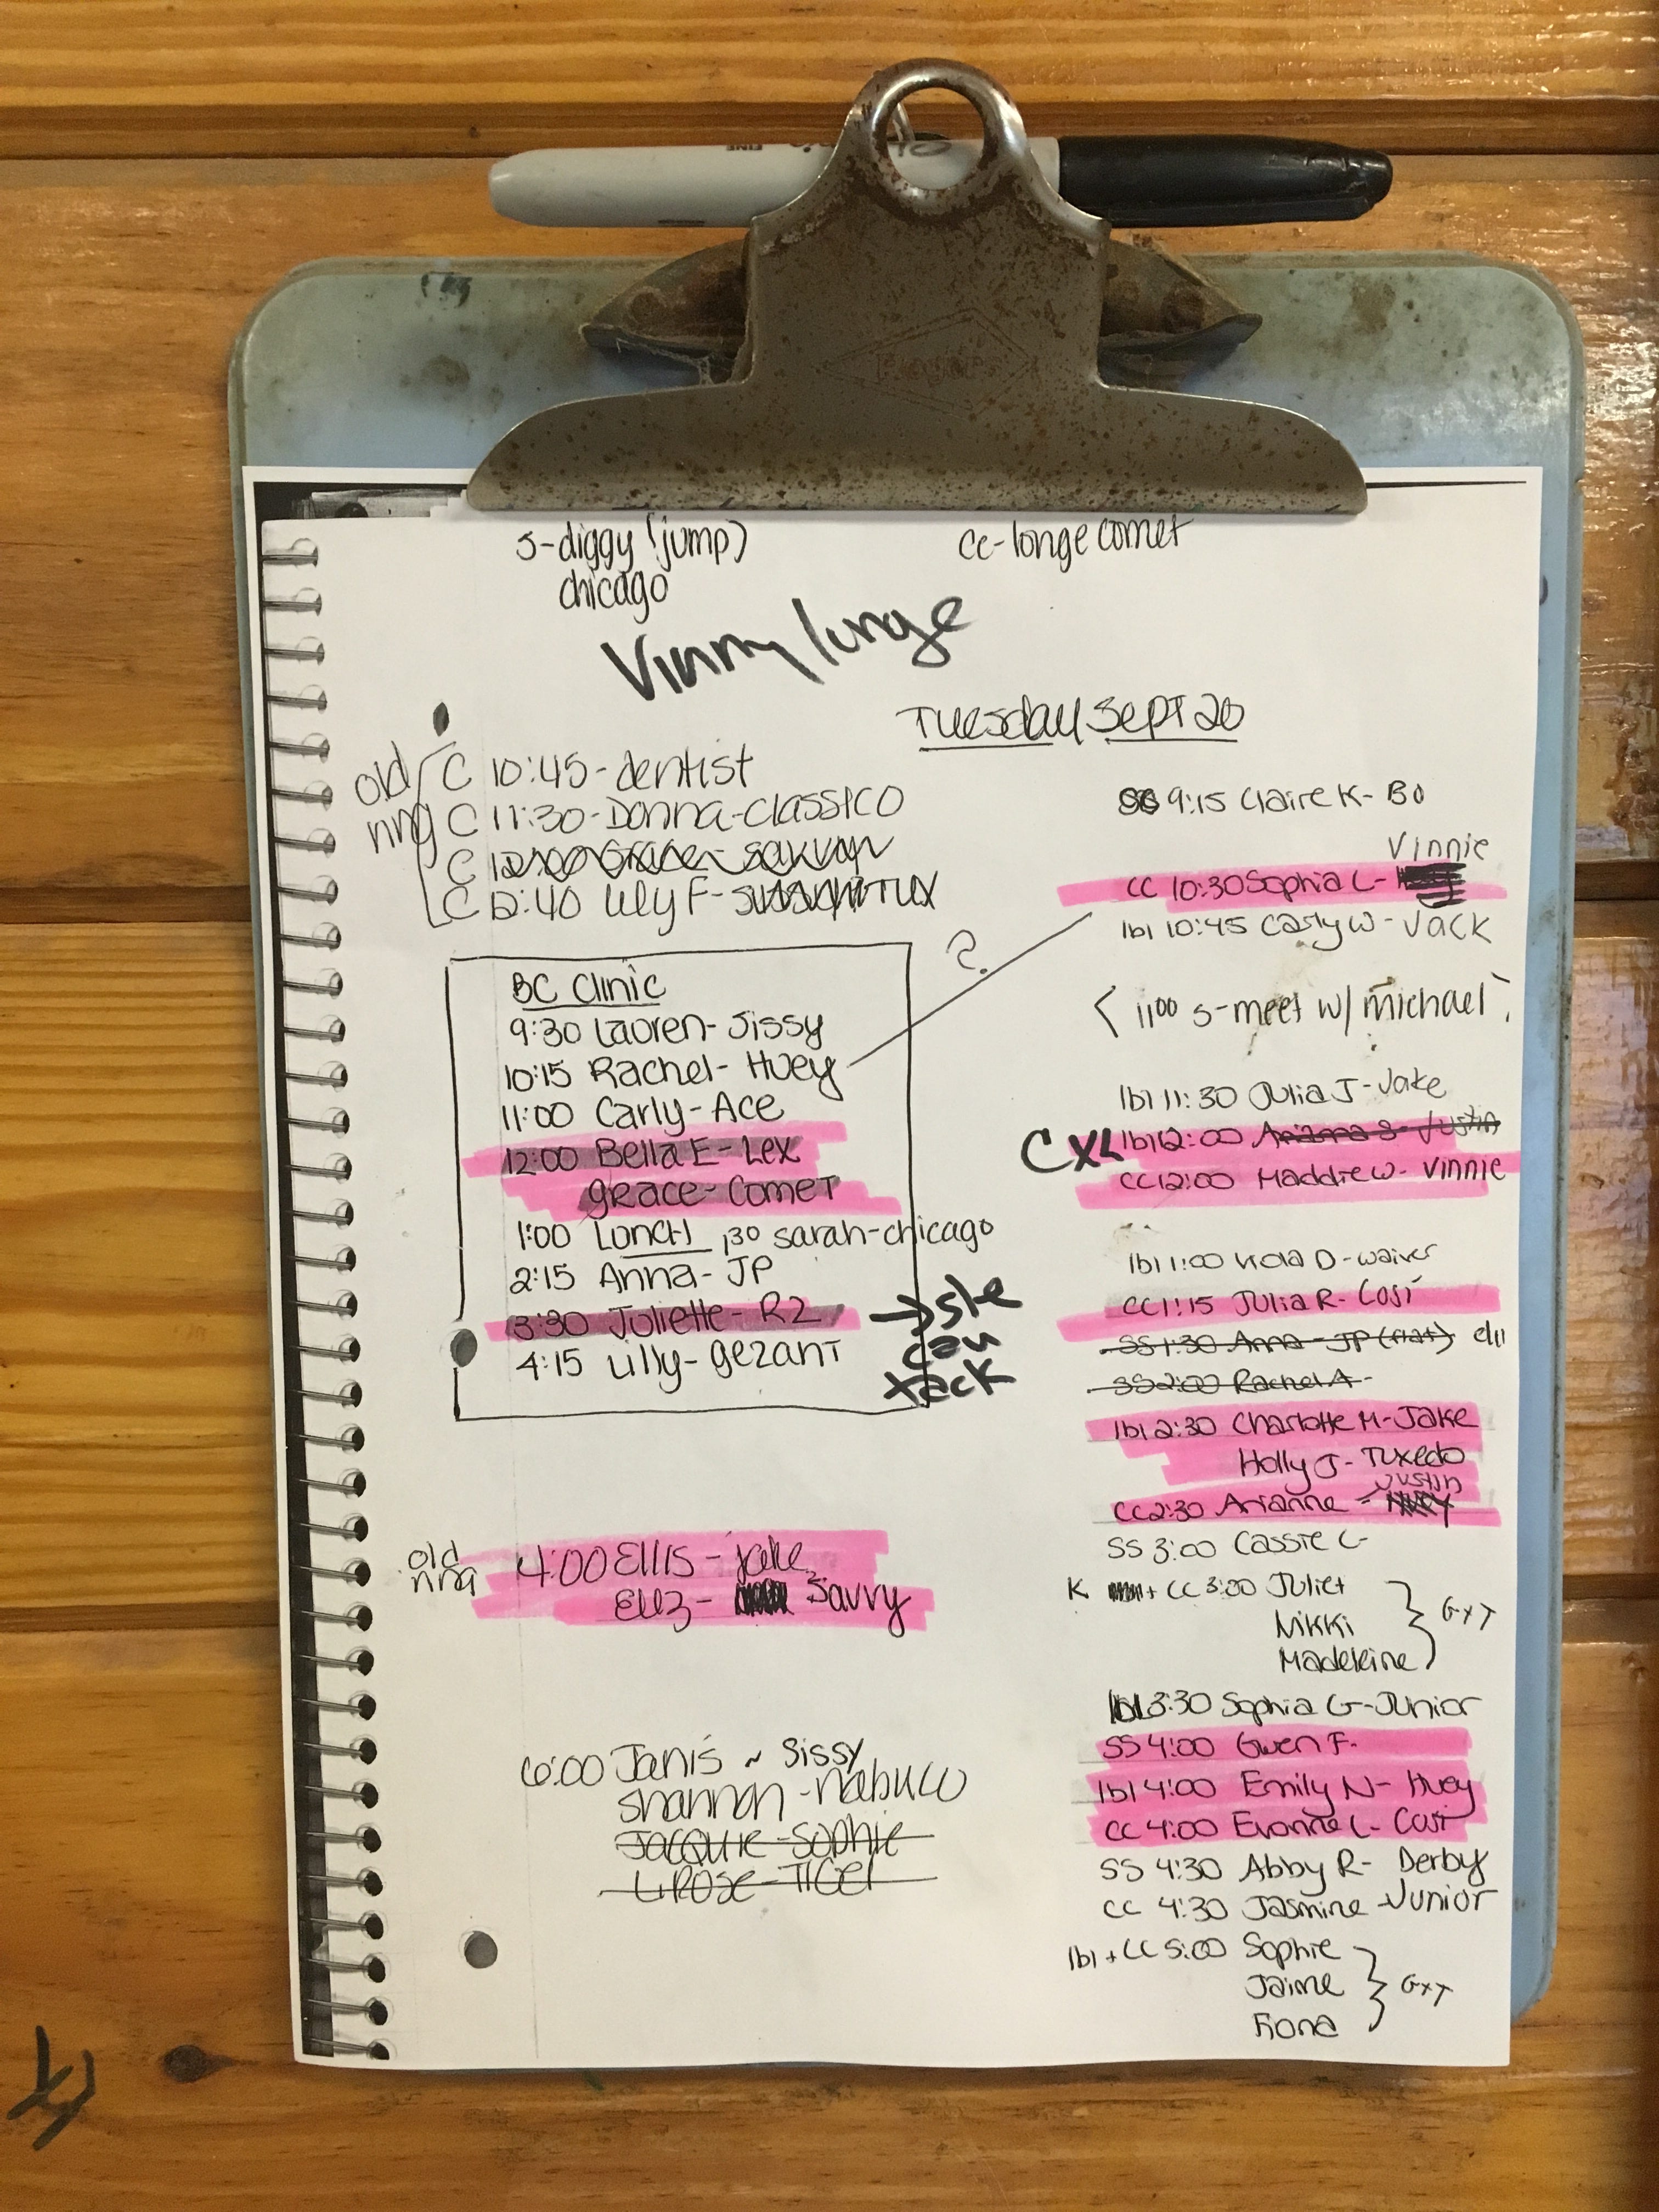 FINE
Rogers
S-diggy (jump)
chicago
CC-longe comet
Vinny lunge
Tuesday Sept 20
old ring
C 10:45-dentist
C 11:30-Donna-Classico
C
C 12:40 Lily F- Tux
BC Clinic
9:30 Lauren- Sissy
10:15 Rachel- Huey
?
11:00 Carly- Ace
12:00 Bella E- Lex
Grace- Comet
1:00 Lunch 1:30 sarah-chicago
2:15 Anna- JP
3:30 Juliette- R2
→ she can tack
4:15 Lilly- Gezant
old ring
4:00 Ellis- jake
Eliz- Savvy
6:00 Janis ~ Sissy
Shannon -Nabuco
Jacquie-Sophie
L. Rose-TIGER
9:15 Claire K- Bo
Vinnie
CC 10:30 Sophia L-
lbl 10:45 Carly W- Jack
< 11:00 S-meet w/ michael >
lbl 11:30 Julia J- Jake
CXL lbl 12:00 Arianna S- Justin
CC 12:00 Maddie W- Vinnie
lbl 1:00 D-waiver
CC 1:15 Julia R- Cosi
SS 1:30 Anna - JP (flat)
SS 2:00 Rachel A-
lbl 2:30 Charlotte M- Jake
Holly J- Tuxedo
Justin
CC 2:30 Arianne -
SS 3:00 Cassie L-
K + CC 3:00 Juliet
Nikki
Madeleine
} GXT
lbl 3:30 Sophia G-Junior
SS 4:00 Gwen F.
lbl 4:00 Emily N- Huey
CC 4:00 Evonne L- Cosi
SS 4:30 Abby R- Derby
CC 4:30 Jasmine -Junior
lbl + CC 5:00 Sophie
Jaime
Fiona
} GXT